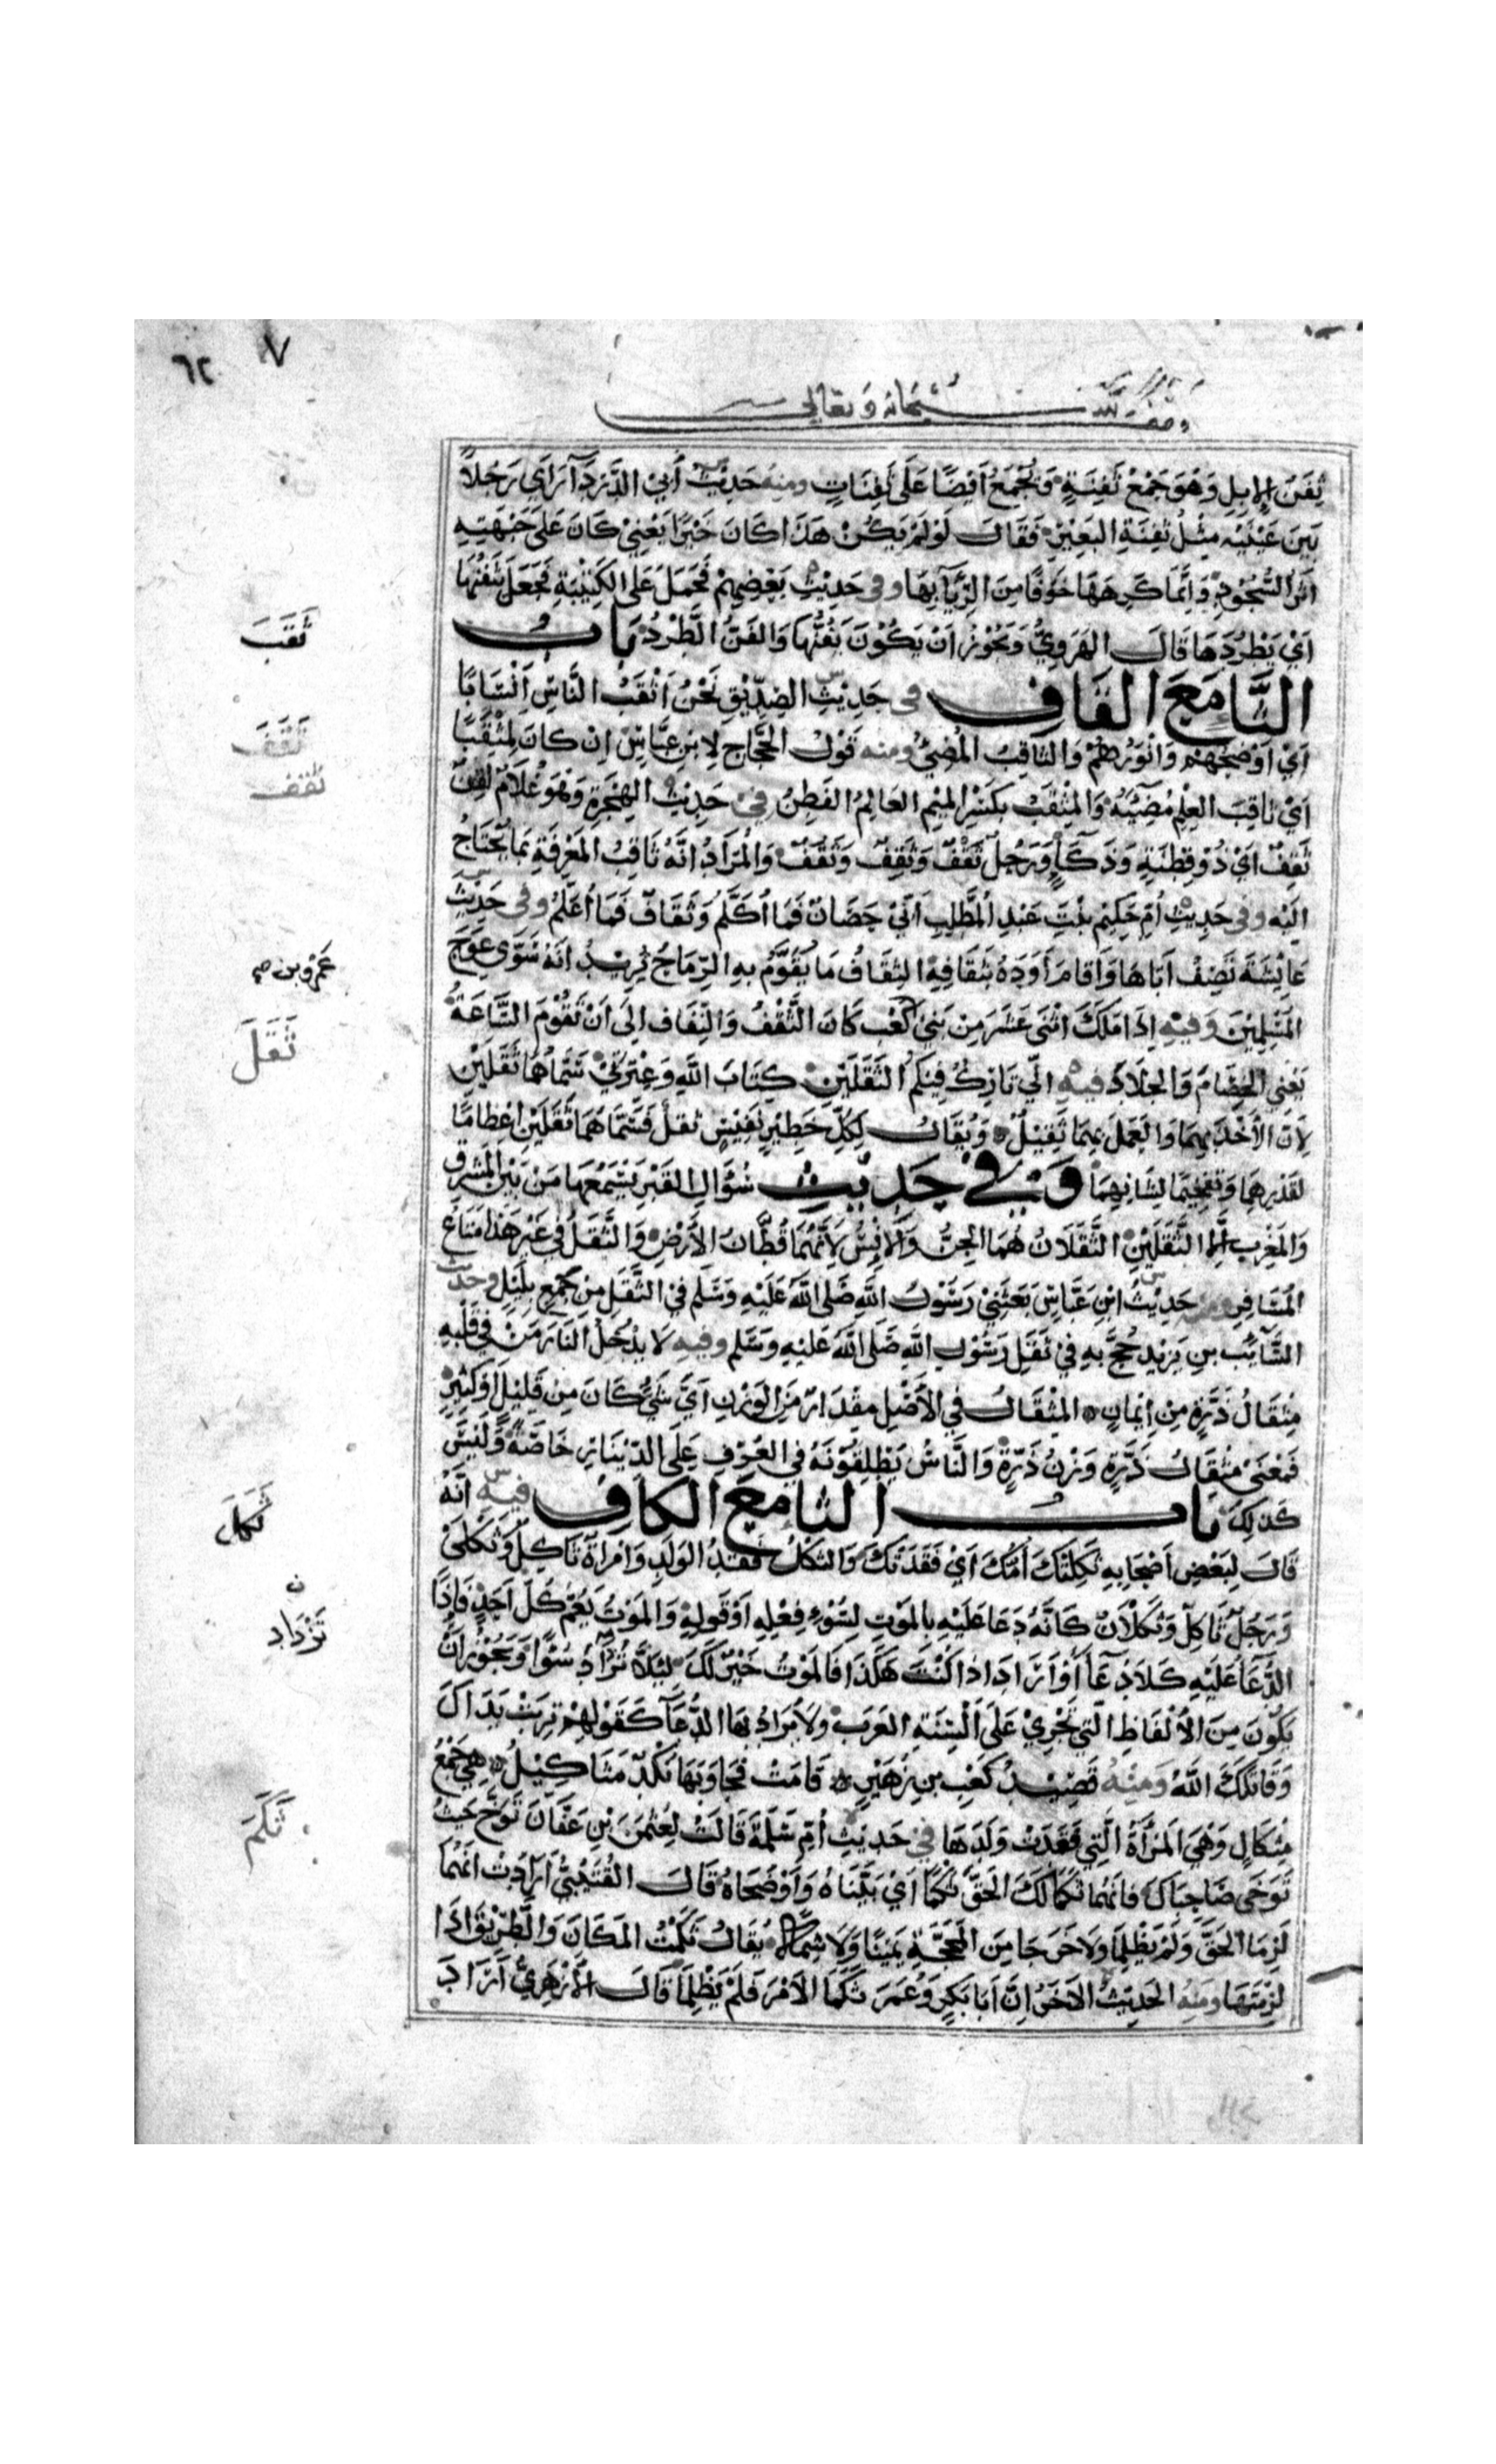 ٦٢ ٧
وقف لله سبحانه وتعالى
ثَفَنِ الإِبِلِ وَهُوَ جَمْعُ ثَفِنَةٍ وَتُجْمَعُ أَيْضًا عَلَى ثَفِنَاتٍ ومنه حَدِيثُ أَبِي الدَّرْدَآءِ رَأَى رَجُلاً
بَيْنَ عَيْنَيْهِ مِثْلُ ثَفِنَةِ البَعِيْرِ فَقَالَ لَوْ لَمْ يَكُنْ هَذَا كَانَ خَيْرًا يَعْنِي كَانَ عَلَى جَبْهَتِهِ
أَثَرُ السُّجُوْدِ وَإِنَّمَا كَرِهَهَا خَوْفًا مِنَ الرِّيَآءِ بِهَا وفى حَدِيْثِ بَعْضِهِمْ فَحَمَلَ عَلَى الكَتِيْبَةِ فَجَعَلَ يَثْفِنُهَا
اَيْ يَطْرُدُهَا قَالَ الهَرَوِيُّ وَيَجُوْزُ اَنْ يَكُوْنَ يَفُنُّهَا وَالفَنُّ الطَّرْدُ بَابُ
الثَّاءِ مَعَ القَافِ فى حَدِيْثِ الصِّدِّيْقِ نَحْنُ اَثْقَبُ النَّاسِ اَنْسَابًا
اَيْ اَوْضَحُهُمْ وَاَنْوَرُهُمْ وَالثَّاقِبُ المُضِيْءُ ومنه قَوْلُ الحَجَّاجِ لِابْنِ عَبَّاسٍ اِنْ كَانَ لَمِثْقَبًا
اَيْ ثَاقِبَ العِلْمِ مُضِيْئَهُ وَالمِثْقَبُ بِكَسْرِ المِيْمِ العَالِمُ الفَطِنُ فى حَدِيْثِ الهِجْرَةِ وَهُوَ غُلَامٌ لَقِنٌ
ثَقِفٌ اَيْ ذُوْ فِطْنَةٍ وَذَكَآءٍ وَرَجُلٌ ثَقْفٌ وَثَقِفٌ وَثَقُفٌ وَالمُرَادُ اَنَّهُ ثَاقِبُ المَعْرِفَةِ بِمَا يُحْتَاجُ
اِلَيْهِ وفى حَدِيْثِ اُمِّ حَكِيْمٍ بِنْتِ عَبْدِ المُطَّلِبِ اِنِّيْ حَصَانٌ فَمَا اُكَلَّمُ وَثَقَافٌ فَمَا اُعَلَّمُ وفى حَدِيْثِ
عَائِشَةَ تَصِفُ اَبَاهَا وَاَقَامَ اَوَدَهُ بِثِقَافِهِ الثِّقَافُ مَا يُقَوَّمُ بِهِ الرِّمَاحُ تُرِيْدُ اَنَّهُ سَوَّى عِوَجَ
المُسْلِمِيْنَ وَفِيْهِ اِذَا مَلَكَ اثْنَى عَشَرَ مِنْ بَنِيْ كَعْبٍ كَانَ الثَّقْفُ وَالثِّقَافُ اِلَى اَنْ تَقُوْمَ السَّاعَةُ
يَعْنِي الخِصَامَ وَالجِلَادَ فيه اِنِّي تَارِكٌ فِيْكُمُ الثَّقَلَيْنِ كِتَابَ اللهِ وَعِتْرَتِيْ سَمَّاهُمَا ثَقَلَيْنِ
لِاَنَّ الاَخْذَ بِهِمَا وَالعَمَلَ بِهِمَا ثَقِيْلٌ وَيُقَالُ لِكُلِّ خَطِيْرٍ نَفِيْسٍ ثَقَلٌ فَسَمَّاهُمَا ثَقَلَيْنِ اِعْظَامًا
لِقَدْرِهِمَا وَتَفْخِيْمًا لِشَانِهِمَا وَفِيْ حَدِيْثِ سُؤَالِ القَبْرِ يَسْمَعُهَا مَنْ بَيْنَ المَشْرِقِ
وَالمَغْرِبِ اِلَّا الثَّقَلَيْنِ الثَّقَلَانُ هُمَا الجِنُّ وَالاِنْسُ لِاَنَّهُمَا قُطَّانُ الاَرْضِ وَالثَّقَلُ فِي غَيْرِ هَذَا مَتَاعُ
المُسَافِرِ ومنه حَدِيْثُ ابْنِ عَبَّاسٍ بَعَثَنِيْ رَسُوْلُ اللهِ صَلَى اللهُ عَلَيْهِ وَسَلَّمَ فِيْ الثَّقَلِ مِنْ جَمْعٍ بِلَيْلٍ وحديث
السَّآئِبِ بْنِ يَزِيْدَ حُجَّ بِهِ فِي ثَقَلِ رَسُوْلِ اللهِ صَلَى اللهُ عَلَيْهِ وَسَلَّمَ وفيه لَا يَدْخُلُ النَّارَ مَنْ فِي قَلْبِهِ
مِثْقَالُ ذَرَّةٍ مِنْ اِيْمَانٍ المِثْقَالُ فِي الاَصْلِ مِقْدَارٌ مِنَ الوَزْنِ اَيَّ شَيْءٍ كَانَ مِنْ قَلِيْلٍ اَوْ كَثِيْرٍ
فَمَعْنَى مِثْقَالُ ذَرَّةٍ وَزْنُ ذَرَّةٍ وَالنَّاسُ يُطْلِقُوْنَهُ فِي العُرْفِ عَلَى الدِّيْنَارِ خَاصَّةً وَلَيْسَ
كَذلِكَ بَابُ الثاءِ مَعَ الكَافِ فيه اَنَّهُ
قَالَ لِبَعْضِ اَصْحَابِهِ ثَكِلَتْكَ اُمُّكَ اَيْ فَقَدَتْكَ وَالثُّكْلُ فَقْدُ الوَلَدِ وَامْرَاَةٌ ثَاكِلٌ وَثَكْلَىْ
وَرَجُلٌ ثَاكِلٌ وَثَكْلَانُ كَانَّهُ دَعَا عَلَيْهِ بِالمَوْتِ لِسُوْءِ فِعْلِهِ اَوْ قَوْلِهِ وَالمَوْتُ يَعُمُّ كُلَّ اَحَدٍ فَاِذًا
الدُّعَآءُ عَلَيْهِ كَلَا دُعَآءٍ اَوْ اَرَادَ اِذَا كُنْتَ هَكَذَا فَالمَوْتُ خَيْرٌ لَكَ لِئَلَّا تُزَادَ سُوْءًا وَيَجُوْزُ اَنْ
يَكُوْنَ مِنَ الاَلْفَاظِ الَّتِي تَجْرِيْ عَلَى اَلْسِنَةِ العَرَبِ وَلَا يُرَادُ بِهَا الدُّعَآءُ كَقَوْلِهِمْ تَرِبَتْ يَدَاكَ
وَقَاتَلَكَ اللهُ وَمِنْهُ قَصِيْدُ كَعْبِ بْنِ زُهَيْرٍ قَامَتْ فَجَاوَبَهَا نُكْدٌ مَثَاكِيْلُ هِيَ جَمْعُ
مِثْكَالٍ وَهْيَ المَرْاَةُ الَّتِي فَقَدَتْ وَلَدَهَا فى حَدِيْثِ اُمِّ سَلَمَةَ قَالَتْ لِعُثْمَنَ بْنِ عَفَّانَ تَوَخَّ حَيْثُ
تَوَخَّى صَاحِبَاكَ فَاِنَّهُمَا ثَكَمَا لَكَ الحَقَّ ثَكْمًا اَيْ بَيَّنَاهُ وَاَوْضَحَاهُ قَالَ القُتَيْبِيُّ اَرَادَتْ اَنَّهُمَا
لَزِمَا الحَقَّ وَلَمْ يَظْلِمَا وَلَا خَرَجَا مِنَ المَحَجَّةِ يَمِيْنًا وَلَا شِمَالًا يُقَالُ ثَكَمْتُ المَكَانَ وَالطَّرِيْقَ اِذَا
لَزِمْتَهَا ومنه الحَدِيْثُ الاَخَرُ اِنَّ اَبَا بَكْرٍ وَعُمَرَ ثَكَمَا الاَمْرَ فَلَمْ يَظْلِمَا قَالَ الاَزْهَرِيُّ اَرَادَ
ثَقَبَ
ثَقَفَ
ثقف
عمرو بن صح
ثَقَلَ
ثَكَلَ
ن
تَزْدَاد
ثَكَمَ